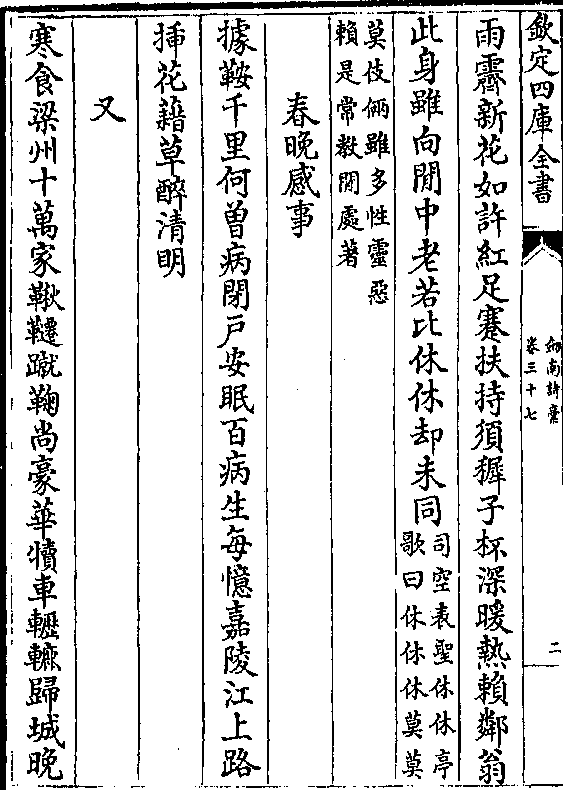 欽定四庫全書
劍南詩稾
卷三十七
二
雨霽新花如許紅足蹇扶持須穉子杯深暖熱賴鄰翁
此身雖向閒中老若比休休却未同
司空表聖休休亭
歌曰休休休莫莫
莫伎倆雖多性靈惡
賴是常教閒處著
春晚感事
據鞍千里何曽病閉戸安眠百病生每憶嘉陵江上路
挿花藉草醉清明
又
寒食梁州十萬家鞦韆蹴鞠尚豪華犢車轣轆歸城晚